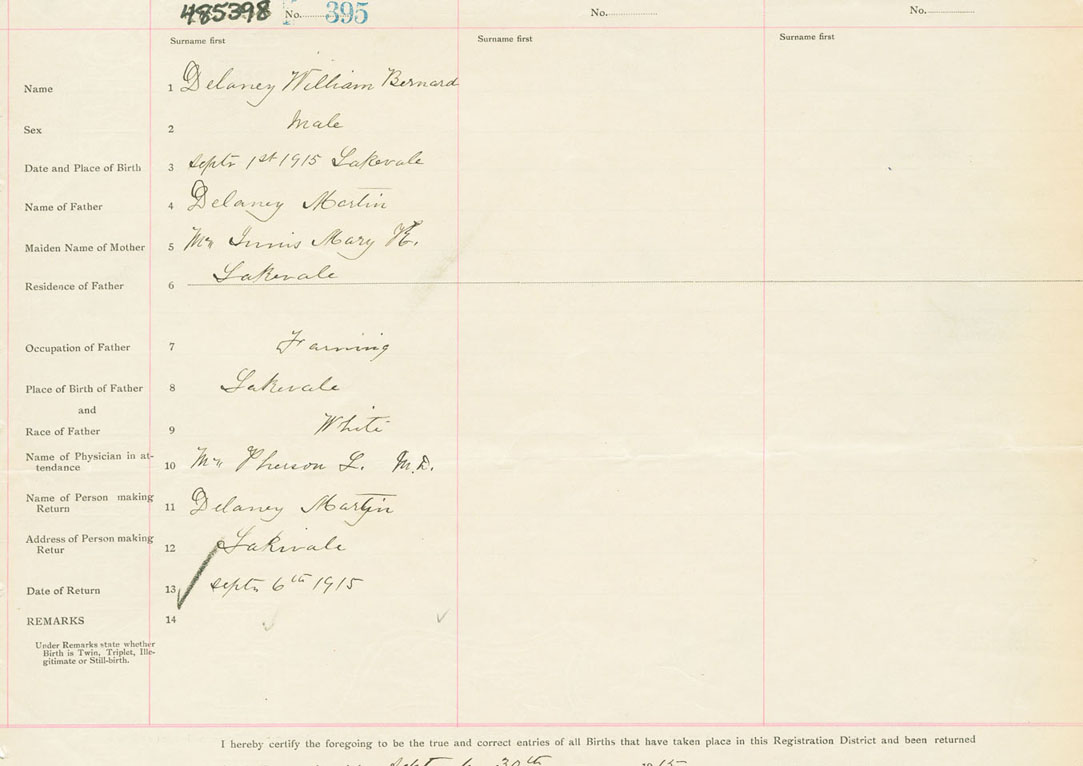 485398 No. 395 No. No.
Surname first Surname first Surname first
Name 1 Delaney William Bernard
Sex 2 Male
Date and Place of Birth 3 Septr 1st 1915 Lakevale
Name of Father 4 Delaney Martin
Maiden Name of Mother 5 Mc Innis Mary
Residence of Father 6 Lakevale
Occupation of Father 7 Farming
Place of Birth of Father 8 Lakevale
and
Race of Father 9 White
Name of Physician in at-
tendance 10 Mc Pherson L. M.D.
Name of Person making
Return 11 Delaney Martin
Address of Person making
Retur 12 Lakevale
Date of Return 13 Septr 6th 1915
REMARKS 14
Under Remarks state whether
Birth is Twin, Triplet, Ille-
gitimate or Still-birth.
I hereby certify the foregoing to be the true and correct entries of all Births that have taken place in this Registration District and been returned
30th 1915